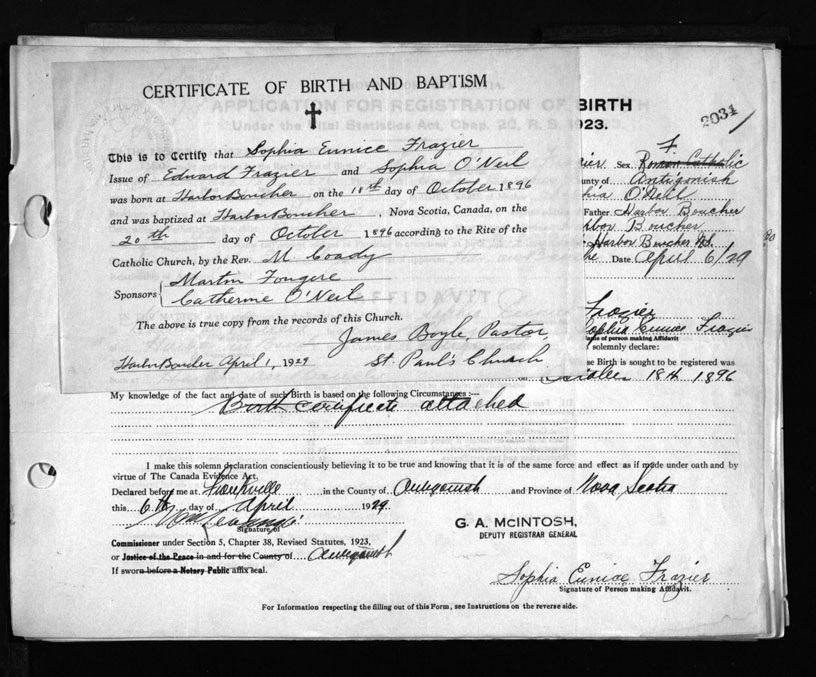 CERTIFICATE OF BIRTH AND BAPTISM
This is to Certify that Sophia Eunice Frazier
Issue of Edward Frazier and Sophia O'Neil
was born at Harbor Boucher on the 18th day of October 1896
and was baptized at Harbor Boucher, Nova Scotia, Canada, on the
20th day of October 1896 according to the Rite of the
Catholic Church, by the Rev. M. Coady
Sponsors Martin Fougere
Catherine O'Neil
The above is true copy from the records of this Church.
James Boyle, Pastor,
Harbor Boucher April 1, 1929 St. Paul's Church
BIRTH
1923.
2034
Sex F Roman Catholic
County of Antigonish
O'Neill
Father Harbor Boucher
Harbor Boucher
Harbor Boucher N.S.
Date April 6/29
Frazier
Sophia Eunice Frazier
Name of person making Affidavit
I solemnly declare:
Birth is sought to be registered was
18th 1896
My knowledge of the fact and date of such Birth is based on the following Circumstances:—
Birth certificate attached
I make this solemn declaration conscientiously believing it to be true and knowing that it is of the same force and effect as if made under oath and by
virtue of The Canada Evidence Act.
Declared before me at in the County of Antigonish and Province of Nova Scotia
this 6th day of April 1929.
Signature of
Commissioner under Section 5, Chapter 38, Revised Statutes, 1923,
or Justice of the Peace in and for the County of Antigonish
If sworn before a Notary Public affix seal.
G. A. McINTOSH,
DEPUTY REGISTRAR GENERAL
Sophia Eunice Frazier
Signature of Person making Affidavit.
For Information respecting the filling out of this Form, see Instructions on the reverse side.